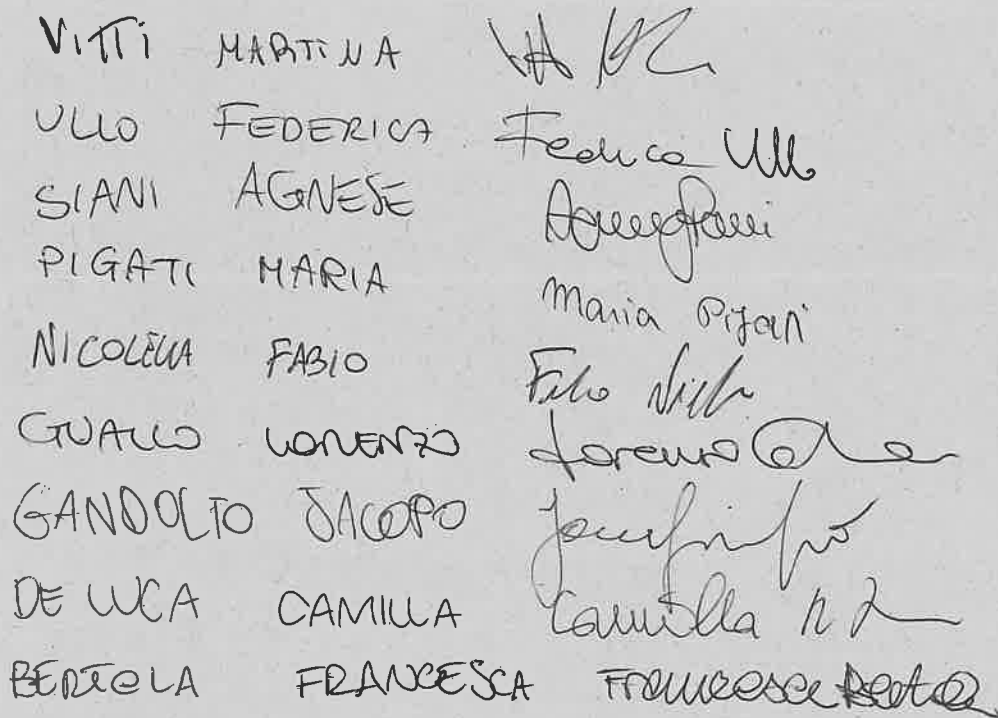 VITTI MARTINA
ULLO FEDERICA Federica Ullo
SIANI AGNESE
PIGATI MARIA Maria Pigati
NICOLELLA FABIO Fabio
GUALCO LORENZO Lorenzo
GANDOLFO JACOPO
DE LUCA CAMILLA Camilla
BERTOLA FRANCESCA Francesca Bertola